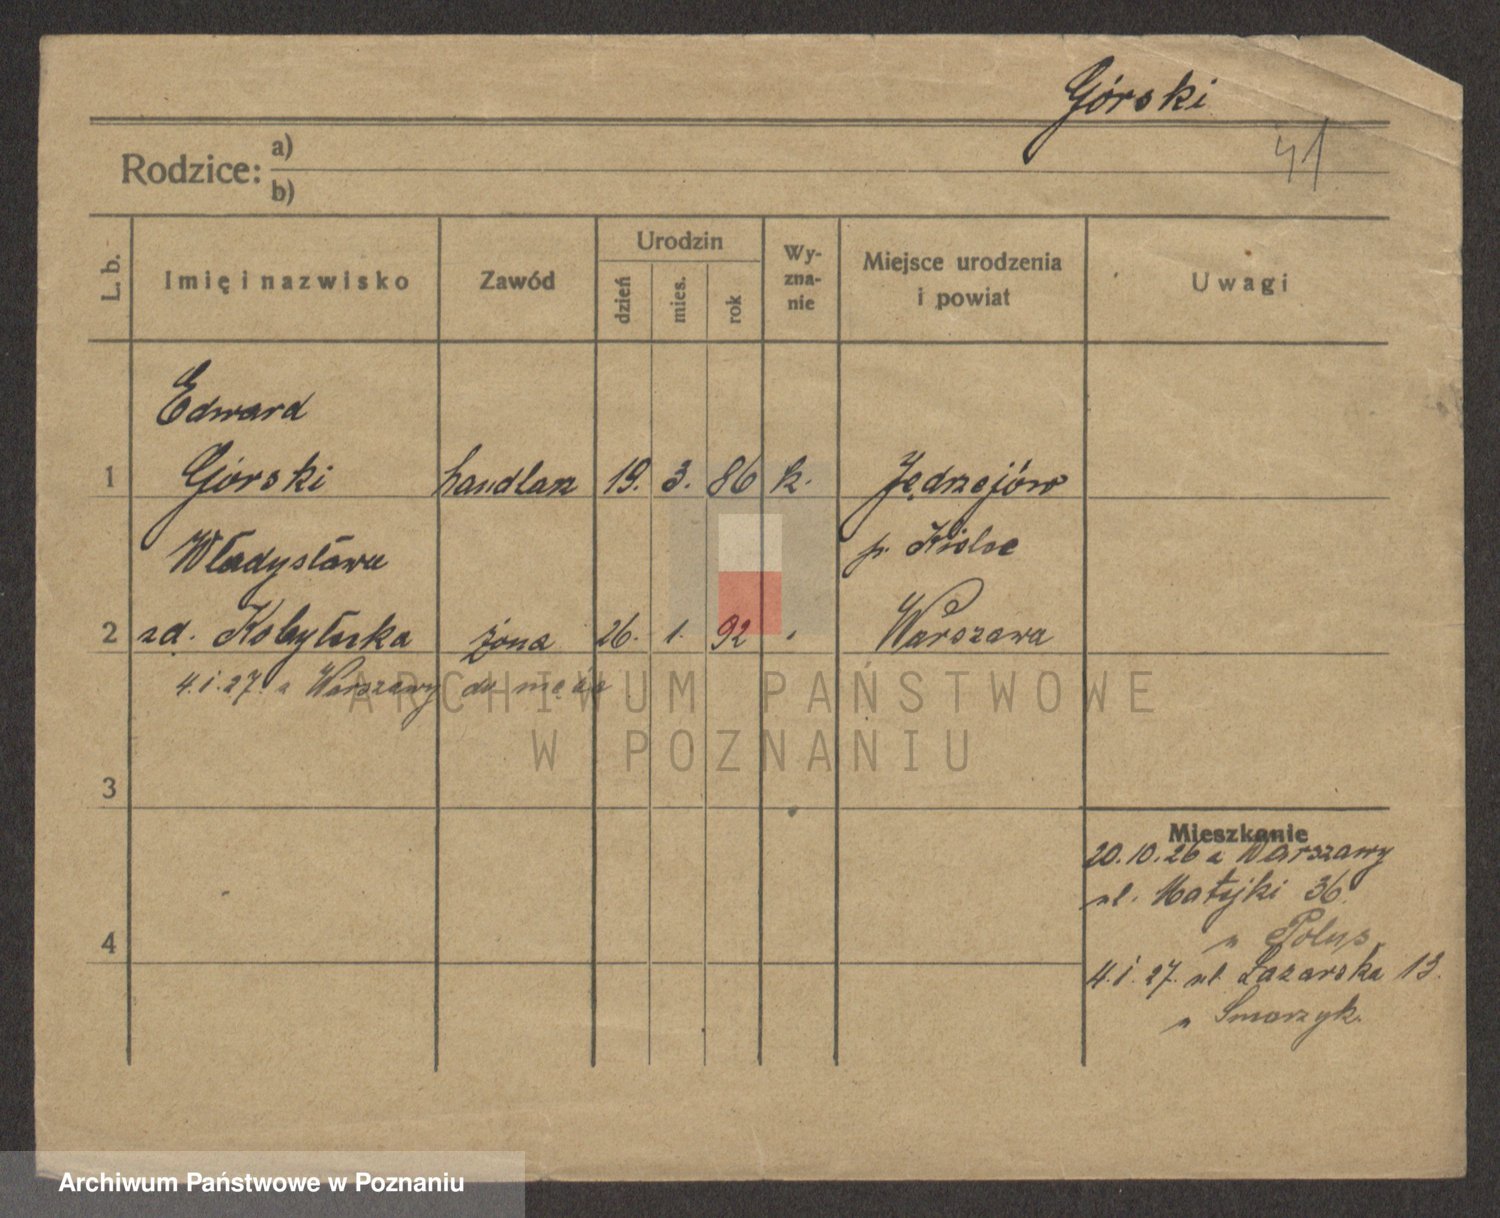 Górski
41
Rodzice: a)
b)
L. b.
Imię i nazwisko
Zawód
Urodzin
dzień
mies.
rok
Wy-
zna-
nie
Miejsce urodzenia
i powiat
Uwagi
Edward
1 Górski handlarz 19. 3. 86 k. Jędrzejów
Władysława p. Kielce
2 zd. Kobyłecka żona 26. 1. 92 Warszawa
4.1.27. z Warszawy do męża
3
4
Mieszkanie
20.10.26 z Warszawy
ul. Matejki 36.
u Polus
4.1.27. ul. Łazarska 13.
u Smarzyk.
ARCHIWUM PAŃSTWOWE
W POZNANIU
Archiwum Państwowe w Poznaniu